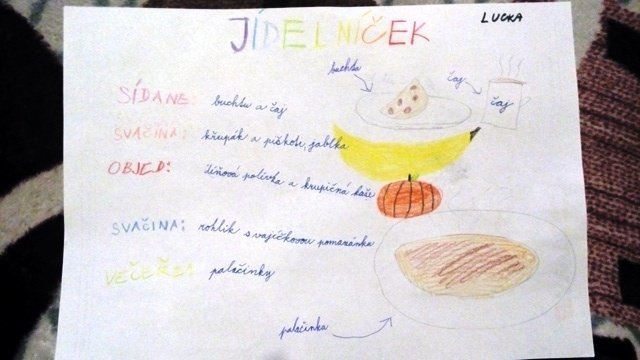 LUCKA
JÍDELNÍČEK
buchta
čaj
čaj
SÍDANE: buchtu a čaj
SVAČINA: křupák a piškote, jablka
OBJED: díňová polívka a krupičná kaše
SVAČINA: rohlík s vajíčkovou pomazánka
VEČEŘE: palačinky
palačinka